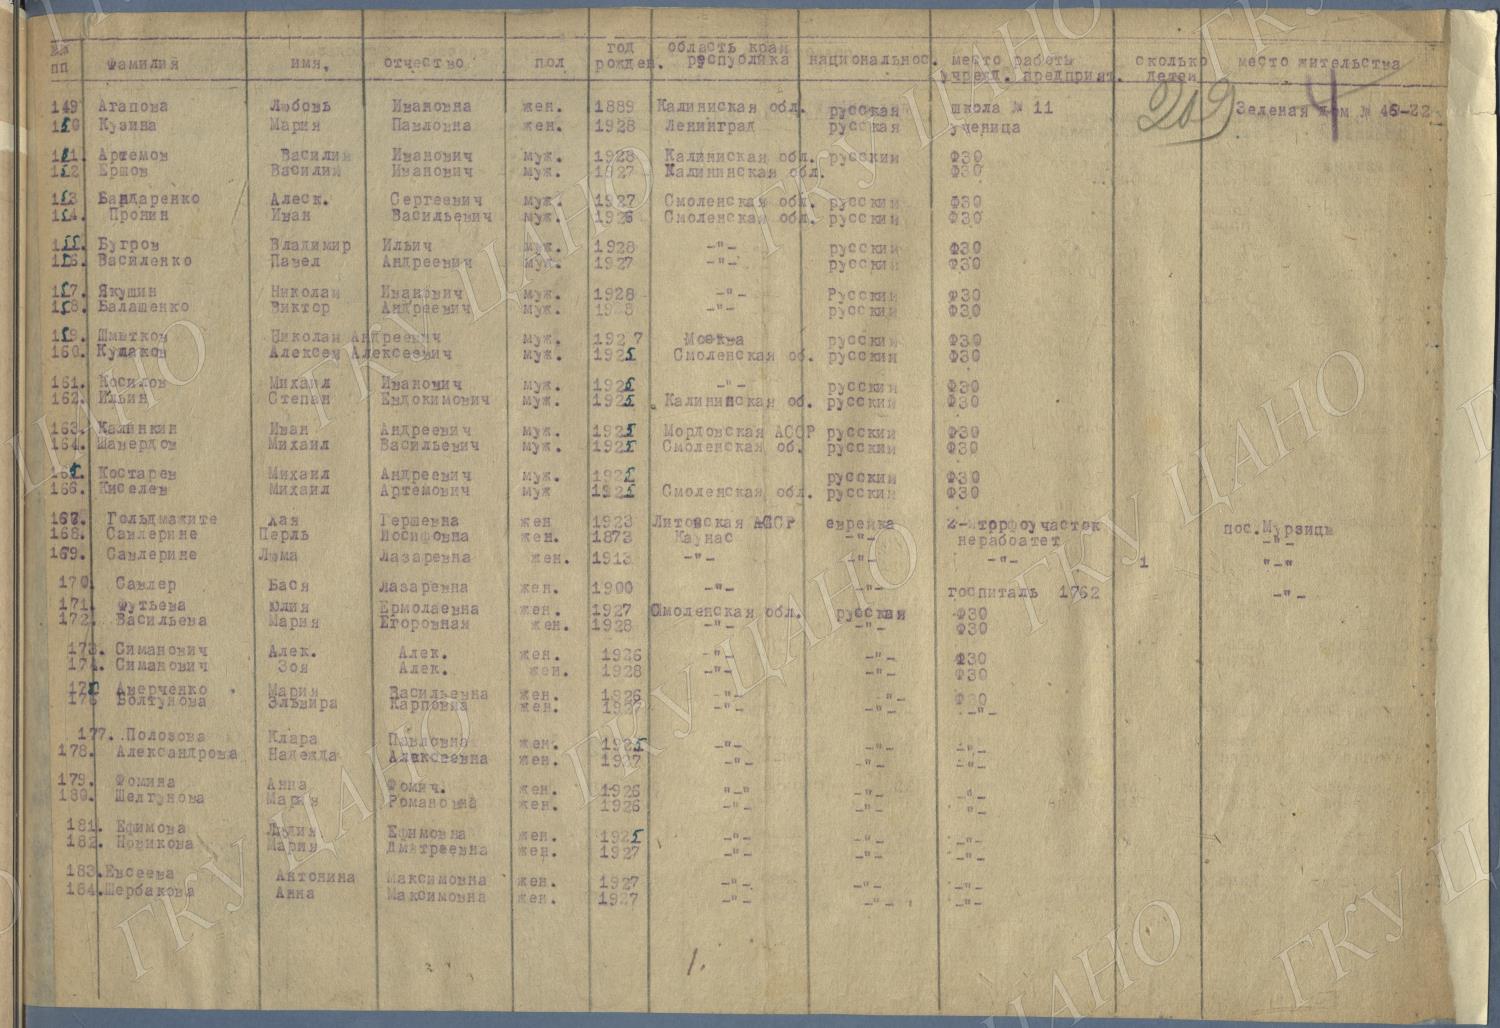 №№ пп фамилия имя, отчество пол год рожден. область край республика национальнос. место работы учрежд. предприят. сколько детей место жительства
209
149 Агапова Любовь Ивановна жен. 1889 Калиниская обл. русская школа № 11 Зеленая дом № 46-32
150 Кузина Мария Павловна жен. 1928 Ленинград русская ученица
151. Артемов Василий Иванович муж. 1928 Калиниская обл. русский ФЗО
152 Ершов Василий Иванович муж. 1927 Калининская обл. ФЗО
153 Бандаренко Алеск. Сергеевич муж. 1927 Смоленская обл. русский ФЗО
154. Пронин Иван Васильевич муж. 1926 Смоленская обл. русский ФЗО
155. Бугров Владимир Ильич муж. 1928 -"- русский ФЗО
156. Василенко Павел Андреевич муж. 1927 -"- русский ФЗО
157. Якушин Николай Иванович муж. 1928 -"- Русский ФЗО
158. Балашенко Виктор Андреевич муж. 1928 -"- русский ФЗО
159. Шмытков Николай Андреевич муж. 1927 Москва русский ФЗО
160. Кулаков Алексей Алексеевич муж. 1925 Смоленская об. русский ФЗО
161. Косилов Михаил Иванович муж. 1925 -"- русский ФЗО
162. Ильин Степан Евдокимович муж. 1925 Калининская об. русский ФЗО
163. Калинкин Иван Андреевич муж. 1925 Мордовская АССР русский ФЗО
164. Шавердов Михаил Васильевич муж. 1925 Смоленская об. русский ФЗО
165. Костарев Михаил Андреевич муж. 1925 русский ФЗО
166. Киселев Михаил Артемович муж 1925 Смоленская обл. русский ФЗО
167. Гольдмажите Хая Гершевна жен 1923 Литовская АССР еврейка 2-йторфоучасток пос.Мурзицы
168. Савлерине Перль Иосифовна жен. 1873 Каунас -"- нерабоатет -"-
169. Савлерине Люма Лазаревна жен. 1913 -"- -"- -"- 1 "-"
170. Савлер Бася Лазаревна жен. 1900 -"- -"- госпиталь 1762 -"-
171. Футьева Юлия Ермолаевна жен. 1927 Смоленская обл. русская ФЗО
172. Васильева Мария Егоровная жен. 1928 -"- -"- ФЗО
173. Симанович Алек. Алек. жен. 1926 -"- -"- ФЗО
174. Симанович Зоя Алек. жен. 1928 -"- -"- ФЗО
175 Аверченко Мария Васильевна жен. 1926 -"- -"- ФЗО
176 Болтунова Эльвира Карповна жен. 1927 -"- -"- -"-
177. Полозова Клара Павловна жен. 1925 -"- -"- -"-
178. Александрова Надежда Алексеевна жен. 1927 -"- -"- -"-
179. Фомина Анна Фомич. жен. 1926 "-" -"- -"-
180. Шелтунова Мария Романовна жен. 1926 -"- -"- "-
181. Ефимова Лидия Ефимовна жен. 1925 -"- -"- -"-
182. Новикова Мария Дмитреевна жен. 1927 -"- -"- -"-
183.Евсеева Антонина Максимовна жен. 1927 -"- -"- -"-
184.Шербакова Анна Максимовна жен. 1927 -"- -"- -"-
1.
ГКУ ЦАНО